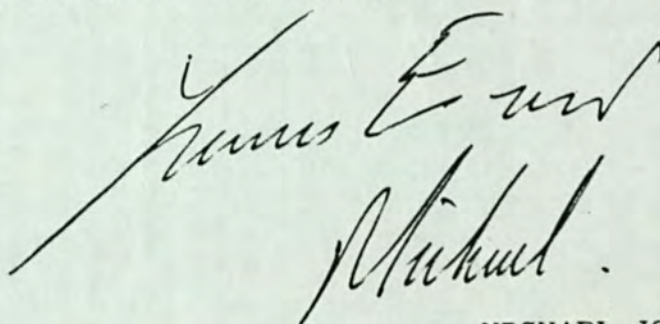 Yours Ever
Michael.
MICHAEL JO